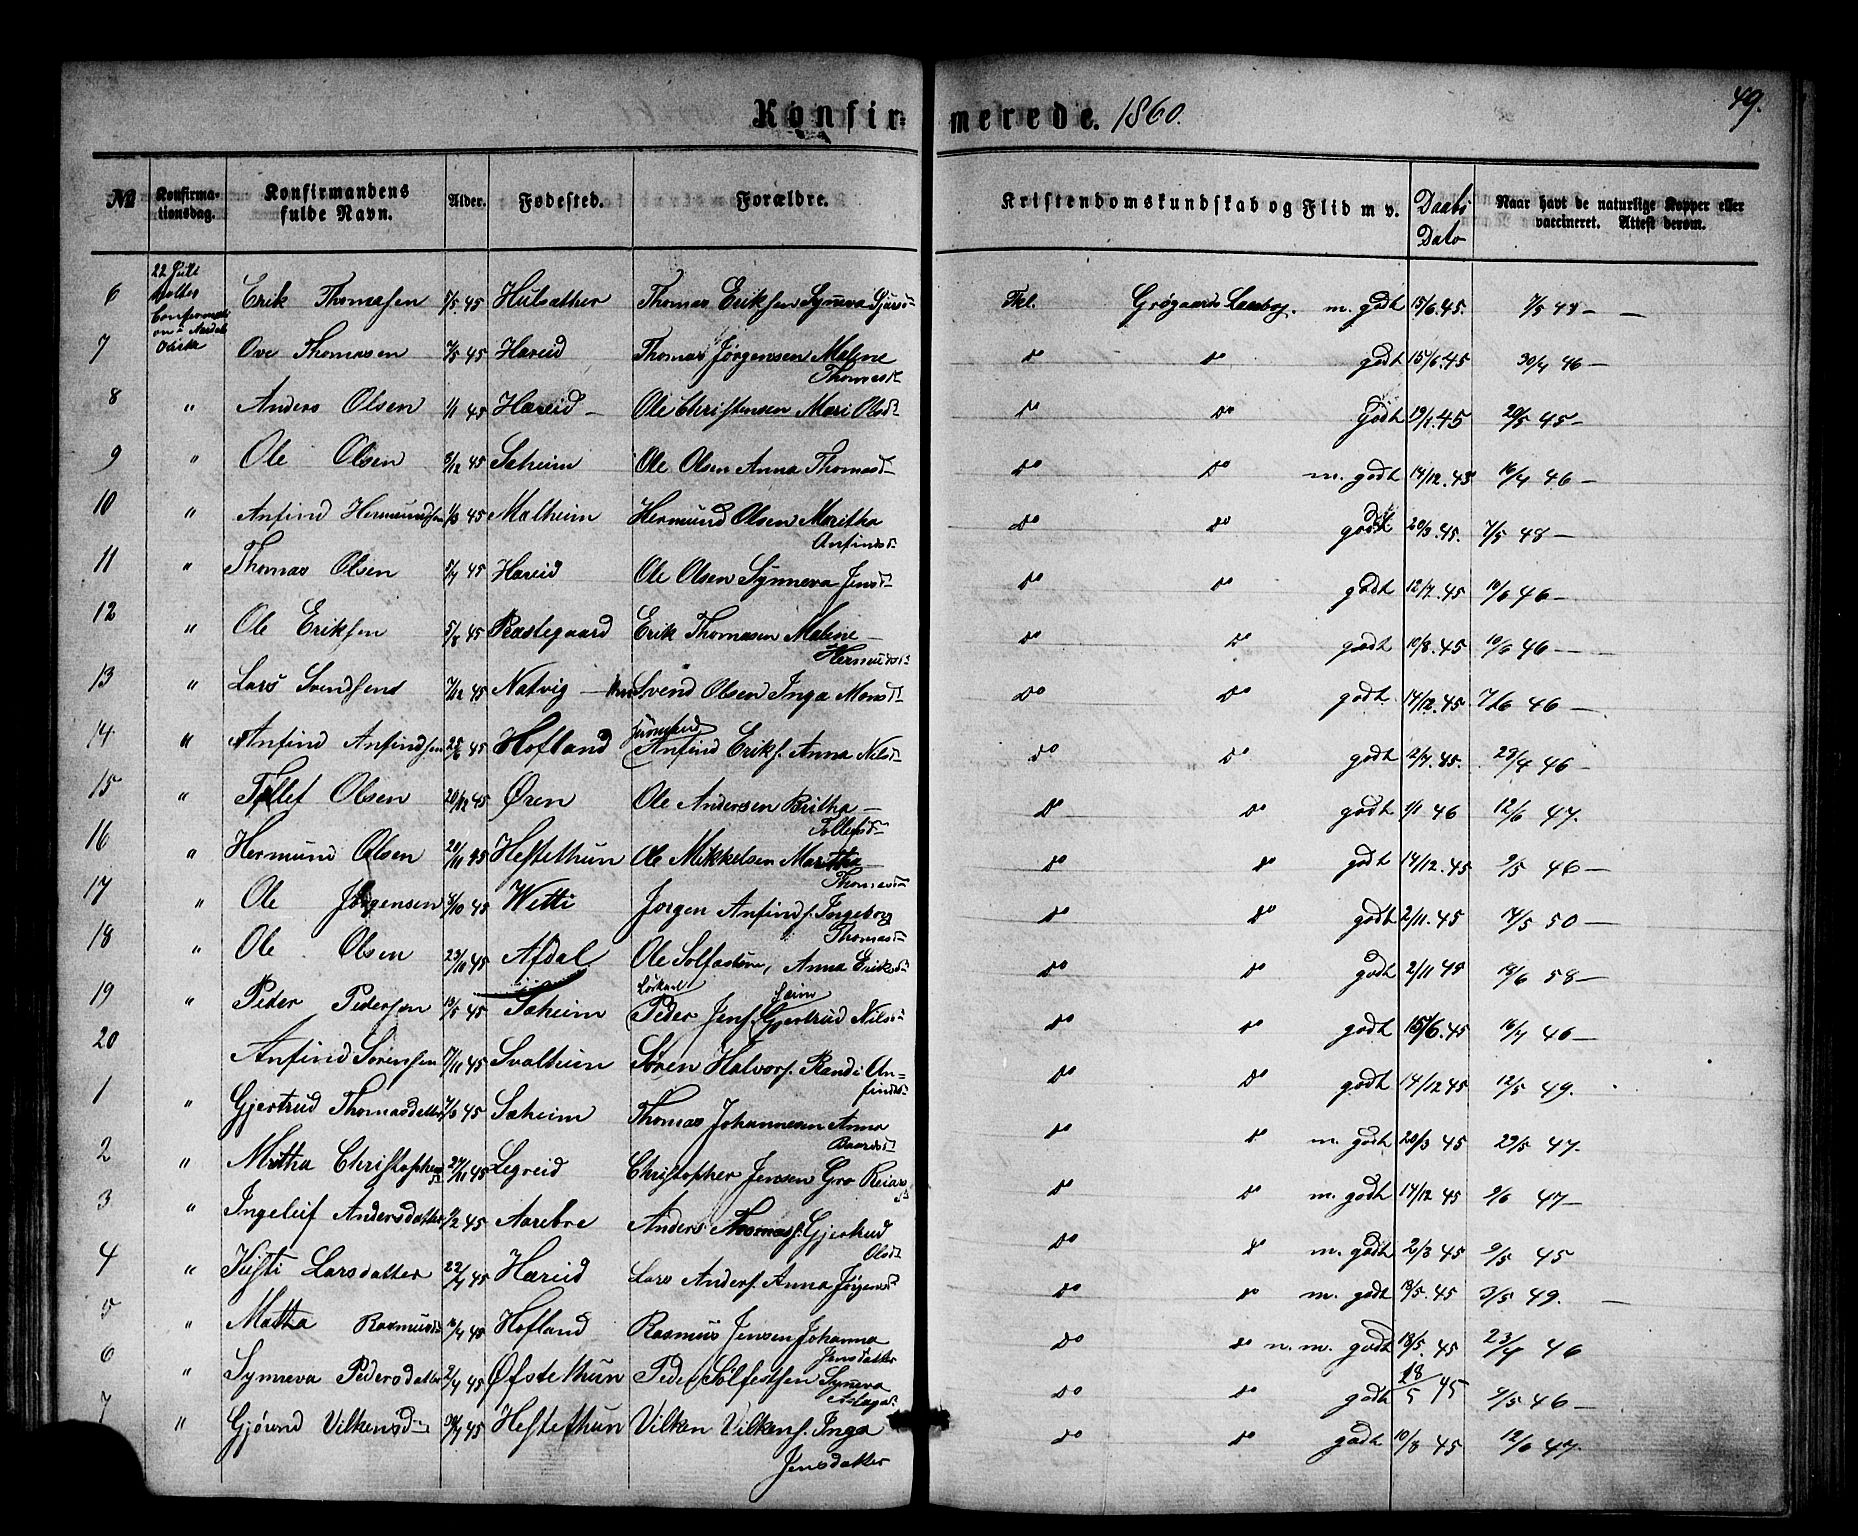 Konfirmerede. 1860.
49.
№ Konfirmationsdag. Konfirmandens fulde Navn. Alder. Fødested. Forældre. Kristendomskundskab og Flid m v. Daabs Dato Naar havt de naturlige Kopper eller vaccineret. Attest derom.
22 Juli
6 Erik Thomassen 7/5 45 Thomas Eriksen Synneva Tkl. Grøgaards Lærebog. m. godt 15/6.45. 7/5 48 —
7 Ove Thomasen 45 Hæreid Thomas Jørgensen Malene Thomasd. do do godt 15/6.45 30/4 46 —
8 " Anders Olsen 1/1 45 Hæreid — Ole Christensen Mari Olsd. do do godt 19/1.45 20/5 45 —
9 " Ole Olsen 3/12 45 Sæheim Ole Olsen Anna Thomasd. do do m. godt 14/12.45 16/4 46 —
10 " Anfind Hermundsen 1/3 45 Hermund Olsen Maritha Anfindsd. do do godt 20/3.45. 7/5 48 —
11 " Thomas Olsen 5/7 45 Hæreid Ole Olsen Synneva Jensd. do do godt 12/7.45 10/6 46 —
12 " Ole Eriksen 5/8 45 Præstegaard Erik Thomasen Malene Hermundsd. do do godt 10/8.45 10/6 46 —
13 " Lars Svendsen 7/12 45 Natvig — Svend Olsen Inga Monsd. do do godt 14/12.45 46 —
14 " Anfind Anfindsen 25/6 45 Hofland Anfind Eriks. Anna Nilsd. do do godt 2/7.45. 23/4 46 —
15 " Tollef Olsen 20/12 45 Øren Ole Andersen Britha — Tollefsd. do do godt 1/1 46 12/6 47.
16 " Hermund Olsen 20/11 45 Heftethun Ole Mikkelsen Martha Thomasd. do do godt 14/12.45 9/5 46 —
17 " Ole Jørgensen 4/10 45 Wetti Jørgen Anfinds. Ingeborg Thomasd. do do godt 2/11.45 14/5 50 —
18 " Ole Olsen 23/10 45 Afdal Ole Solfæstsen, Anna Eriksd. do do godt 2/11 45 18/6 58 —
19 " Peder Pedersen 13/5 45 Sæheim Peder Jens. Gjertrud Nilsd. do do godt 15/6.45 16/4 46 —
20 Anfind Sørensen 7/11 45 Svalheim Søren Halvors. Randi Anfindsd. do do godt 14/12 45 12/5 49.
1 " Gjertrud Thomasdatter 7/3 45 Sæheim Thomas Johannesen Anna Baardsd. do do m. godt 20/3 45 29/5 47.
2 " Martha Christophersd. 27/11 45 Legreid Christopher Jensen Gro Reiarsd. do do m. godt 14/12 45 9/6 47 —
3 " Ingeleif Andersdatter 9/2 45 Aarebro Anders Thomass. Gjertrud Olsd. do do m. godt 2/3 45 9/5 45
4 " Kisti Larsdatter 22/4 45 Hæreid Lars Anders. Anna Jørgensd. do do m. godt 13/5.45 3/5 49. —
5 " Martha Rasmusd. 16/4 45 Hofland Rasmus Jensen Johanna Jensdatter do do m. godt 13/5.45 23/4 46
6 " Synneva Pedersdatter 2/4 45 Øfstethun Peder Solfestsen Synneva do do godt 18/5 45 9/5 46 —
7 " Gjørond Vilkensd. 45 Heftethun Vilken Vilkens. Inga Jensdatter do do godt 10/8 45 12/6 47.